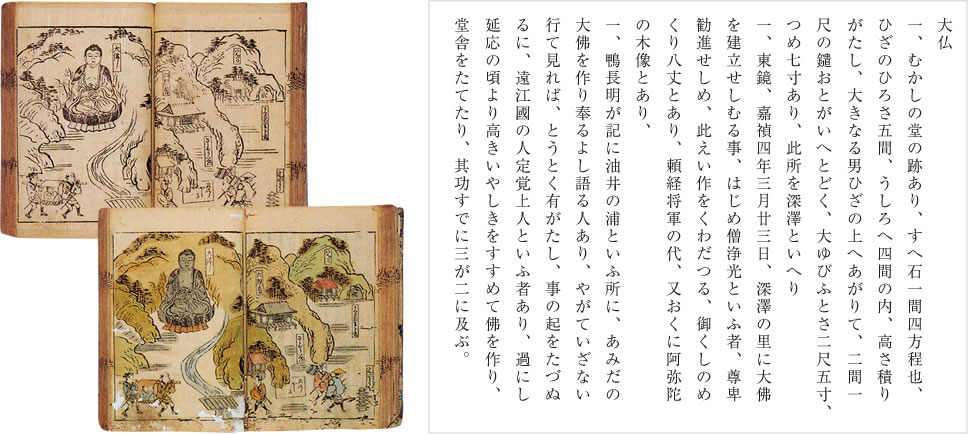 大仏
一、むかしの堂の跡あり、すへ石一間四方程也、
ひざのひろさ五間、うしろへ四間の内、高さ積り
がたし、大きなる男ひざの上へあがりて、二間一
尺の鑓おとがいへとどく、大ゆびふとさ二尺五寸、
つめ七寸あり、此所を深澤といへり
一、東鏡、嘉禎四年三月廿三日、深澤の里に大佛
を建立せしむる事、はじめ僧浄光といふ者、尊卑
勧進せしめ、此えい作をくわだつる、御くしのめ
くり八丈とあり、頼経将軍の代、又おくに阿弥陀
の木像とあり、
一、鴨長明が記に油井の浦といふ所に、あみだの
大佛を作り奉るよし語る人あり、やがていざない
行て見れば、とうとく有がたし、事の起をたづぬ
るに、遠江國の人定覚上人といふ者あり、過にし
延応の頃より高きいやしきをすすめて佛を作り、
堂舎をたてたり、其功すでに三が二に及ぶ。
大佛
大佛